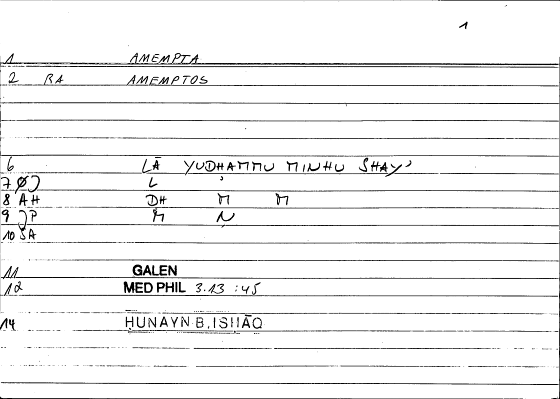 1
1 AMEMPTA
2 RA AMEMPTOS
6 LĀ YUDHAMMU MINHU SHAYʾ
7 L
8 ĀH DH M M
9 M N
10 SA
11 GALEN
12 MED PHIL 3.13 :45
14 ḤUNAYN B. ISḤĀQ